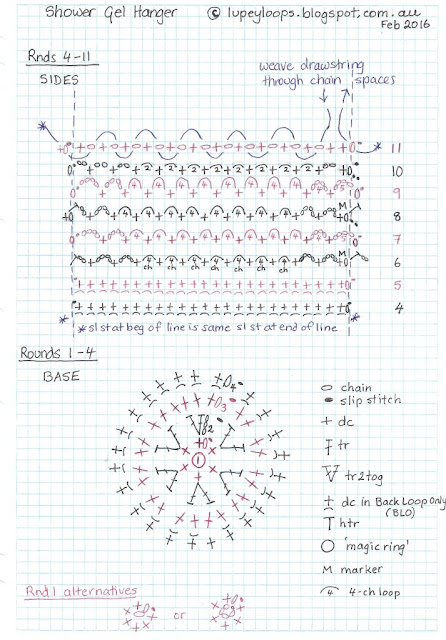 Shower Gel Hanger © lupeyloops.blogspot.com.au
Feb 2016
Rnds 4-11
SIDES
weave drawstring
through chain spaces
11
10
9
8
7
6
5
4
M
M
ch ch ch ch ch ch
* sl st at beg of line is same sl st at end of line
Rounds 1-4
BASE
4
3
2
1
chain
slip stitch
dc
tr
tr2tog
dc in Back Loop Only
(BLO)
htr
'magic ring'
M marker
4 4-ch loop
Rnd 1 alternatives
or